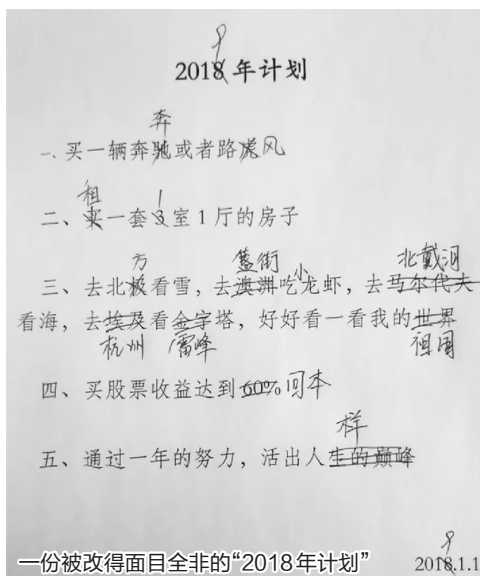 9
2018年计划
奔
一、买一辆奔驰或者路虎风
租 1
二、买一套3室1厅的房子
方 簋街 小 北戴河
三、去北极看雪，去澳洲吃龙虾，去马尔代夫
看海，去埃及看金字塔，好好看一看我的世界
杭州 雷峰 祖国
四、买股票收益达到60%回本
样
五、通过一年的努力，活出人生的巅峰
9
2018.1.1
一份被改得面目全非的“2018年计划”